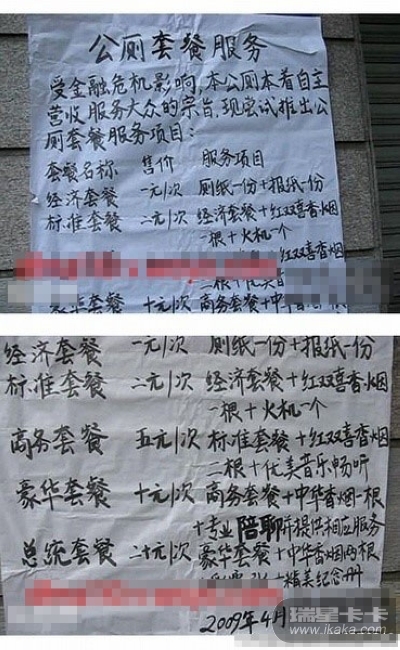 公厕套餐服务
受金融危机影响,本公厕本着自主
营收服务大众的宗旨,现尝试推出公
厕套餐服务项目:
套餐名称 售价 服务项目
经济套餐 一元/次 厕纸一份+报纸一份
标准套餐 二元/次 经济套餐+红双喜香烟
一根+火机一个
红双喜香烟
二根+优美音
豪华套餐 十元/次 商务套餐+中华香烟一根
经济套餐 一元/次 厕纸一份+报纸一份
标准套餐 二元/次 经济套餐+红双喜香烟
一根+火机一个
商务套餐 五元/次 标准套餐+红双喜香烟
二根+优美音乐畅听
豪华套餐 十元/次 商务套餐+中华香烟一根
+专业陪聊并提供相应服务
总统套餐 二十元/次 豪华套餐+中华香烟两根
+精美纪念册
2009年4月
瑞星卡卡
www.ikaka.com